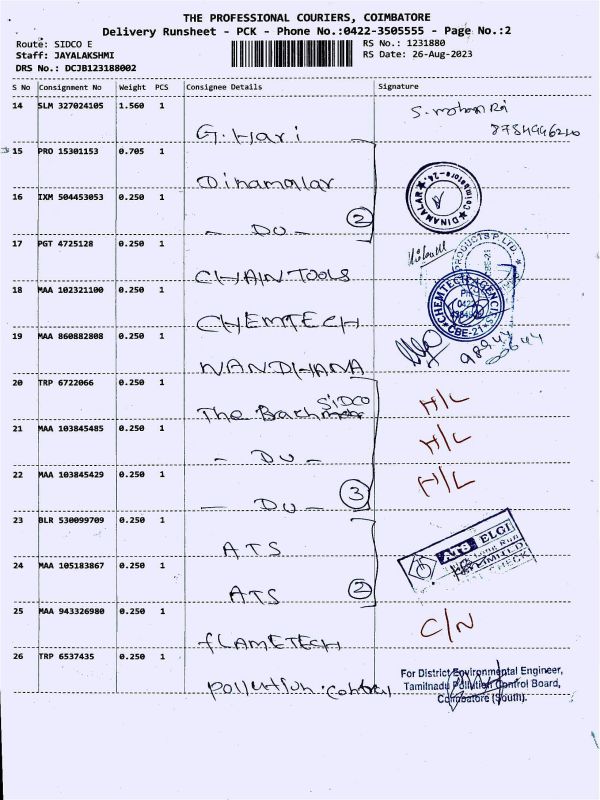 THE PROFESSIONAL COURIERS, COIMBATORE
Delivery Runsheet - PCK - Phone No.:0422-3505555 - Page No.:2
Route: SIDCO E
RS No.: 1231880
Staff: JAYALAKSHMI
RS Date: 26-Aug-2023
DRS No.: DCJB123188002
S No Consignment No Weight PCS Consignee Details Signature
14 SLM 327024105 1.560 1
G. Hari
15 PRO 15301153 0.705 1
Dinamalar
DINAMALAR
16 IXM 504453053 0.250 1
- DU - 2
17 PGT 4725128 0.250 1
CHAIN TOOLS
PRODUCTS P. LTD.
18 MAA 102321100 0.250 1
CHEMTECH
CHEMTECH AGENCI
CBE-21
19 MAA 860882808 0.250 1
NANDHANA
20 TRP 6722066 0.250 1
SIDCO
The H/L
21 MAA 103845485 0.250 1
- DU - H/L
22 MAA 103845429 0.250 1
- DU - 3 H/L
23 BLR 530099709 0.250 1
ATS
ATS ELGI
24 MAA 105183867 0.250 1
ATS 2
25 MAA 943326980 0.250 1
FLAMETECH C/N
26 TRP 6537435 0.250 1
pollution control
For District Environmental Engineer,
Tamilnadu Pollution Control Board,
Coimbatore (South).